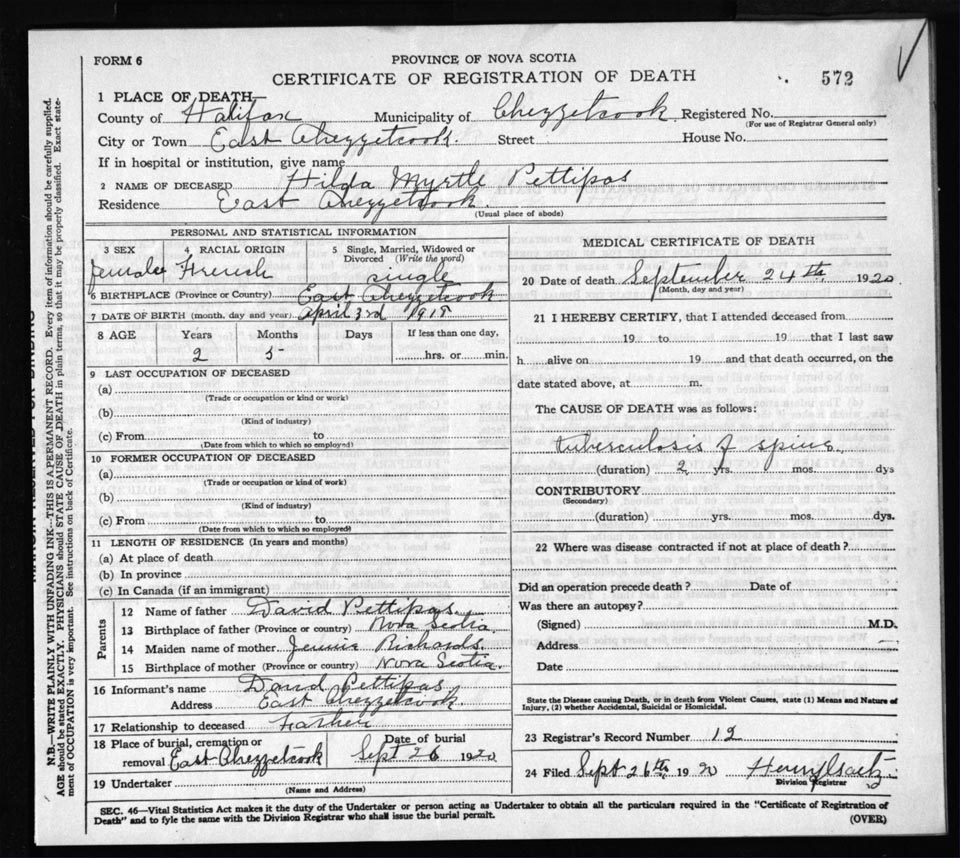 FORM 6
PROVINCE OF NOVA SCOTIA
CERTIFICATE OF REGISTRATION OF DEATH
572
1 PLACE OF DEATH—
County of Halifax Municipality of Chezzetcook Registered No.
(For use of Registrar General only)
City or Town East Chezzetcook. Street House No.
If in hospital or institution, give name
2 NAME OF DECEASED Hilda Myrtle Pettipas
Residence East Chezzetcook.
(Usual place of abode)
PERSONAL AND STATISTICAL INFORMATION
3 SEX 4 RACIAL ORIGIN 5 Single, Married, Widowed or Divorced (Write the word)
female French single
6 BIRTHPLACE (Province or Country) East Chezzetcook
7 DATE OF BIRTH (month, day and year) April 3rd 1918
8 AGE Years Months Days If less than one day,
2 5 hrs. or min.
9 LAST OCCUPATION OF DECEASED
(a)
(Trade or occupation or kind or work)
(b)
(Kind of industry)
(c) From to
(Date from which to which so employed)
10 FORMER OCCUPATION OF DECEASED
(a)
(Trade or occupation or kind of work)
(b)
(Kind of industry)
(c) From to
(Date from which to which so employed)
11 LENGTH OF RESIDENCE (In years and months)
(a) At place of death
(b) In province
(c) In Canada (if an immigrant)
Parents
12 Name of father David Pettipas.
13 Birthplace of father (Province or country) Nova Scotia.
14 Maiden name of mother Jennie Richards.
15 Birthplace of mother (Province or country) Nova Scotia.
16 Informant's name David Pettipas
Address East Chezzetcook.
17 Relationship to deceased Father
18 Place of burial, cremation or removal East Chezzetcook Date of burial Sept 26 1920
19 Undertaker
(Name and Address)
MEDICAL CERTIFICATE OF DEATH
20 Date of death September 24th, 1920
(Month, day and year)
21 I HEREBY CERTIFY, that I attended deceased from
19 to 19 that I last saw
h alive on 19 and that death occurred, on the
date stated above, at m.
The CAUSE OF DEATH was as follows:
tuberculosis of spine.
(duration) 2 yrs. mos. dys
CONTRIBUTORY
(Secondary)
(duration) yrs. mos. dys.
22 Where was disease contracted if not at place of death?
Did an operation precede death? Date of
Was there an autopsy?
(Signed) M.D.
Address
Date
State the Disease causing Death, or in death from Violent Causes, state (1) Means and Nature of
Injury, (2) whether Accidental, Suicidal or Homicidal.
23 Registrar's Record Number 12
24 Filed Sept 26th, 1920
Division Registrar
SEC. 46—Vital Statistics Act makes it the duty of the Undertaker or person acting as Undertaker to obtain all the particulars required in the "Certificate of Registration of
Death" and to fyle the same with the Division Registrar who shall issue the burial permit.
(OVER)
MARGIN RESERVED FOR BINDING
N.B.—WRITE PLAINLY WITH UNFADING INK—THIS IS A PERMANENT RECORD. Every item of information should be carefully supplied.
AGE should be stated EXACTLY. PHYSICIANS should STATE CAUSE OF DEATH in plain terms, so that it may be properly classified. Exact state-
ment of OCCUPATION is very important. See instructions on back of Certificate.